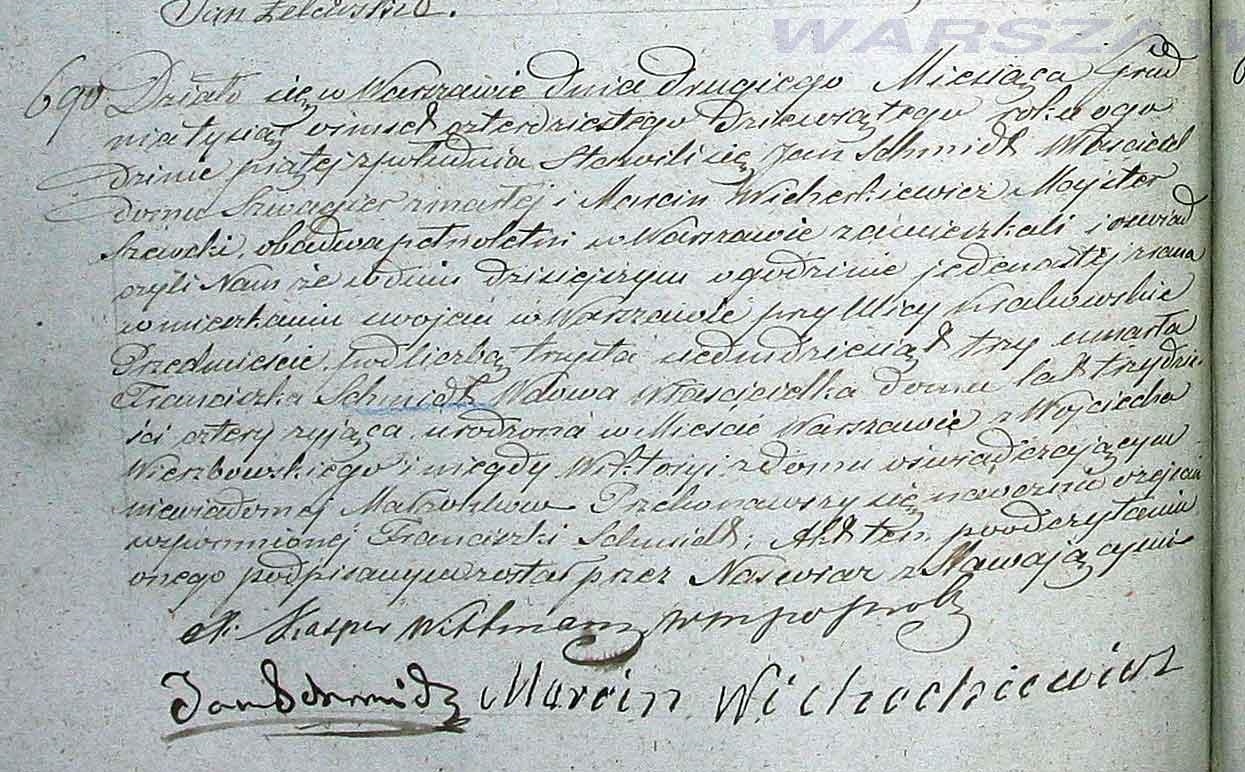 Jan Żelawski.
WARSZAW
690. Działo się w Warszawie dnia drugiego Miesiąca Grud
nia tysiąc ośmset czterdziestego dziewiątego roku ogo
dzinie piątej z południa Stawili się Jan Schmidt Właściciel
domu Szwagier zmarłej i Marcin Wicherkiewicz Majster
Szewcki, obadwa pełnoletni w Warszawie zamieszkali i oświad
czyli Nam że w dniu dzisiejszym o godzinie jedenastej z rana
w mieszkaniu swojem w Warszawie przy Ulicy Krakowskie
Przedmieście pod liczbą trzysta siedmdziesiąt trzy umarła
Franciszka Schmidt Wdowa Właścicielka domu lat trzydzie
ści cztery żyjąca, urodzona w Mieście Warszawie z Wojciecha
Wierzbowskiego i niegdy Wiktoryi z domu oświadczającym
niewiadomej Małżonków. Przekonawszy się naocznie o zejściu
wspomnionej Franciszki Schmidt; Akt ten po odczytaniu
onego podpisanym został przez Nas wraz z Stawającymi
X. Kasper Wittman
Jan Schmidt Marcin Wicherkiewicz